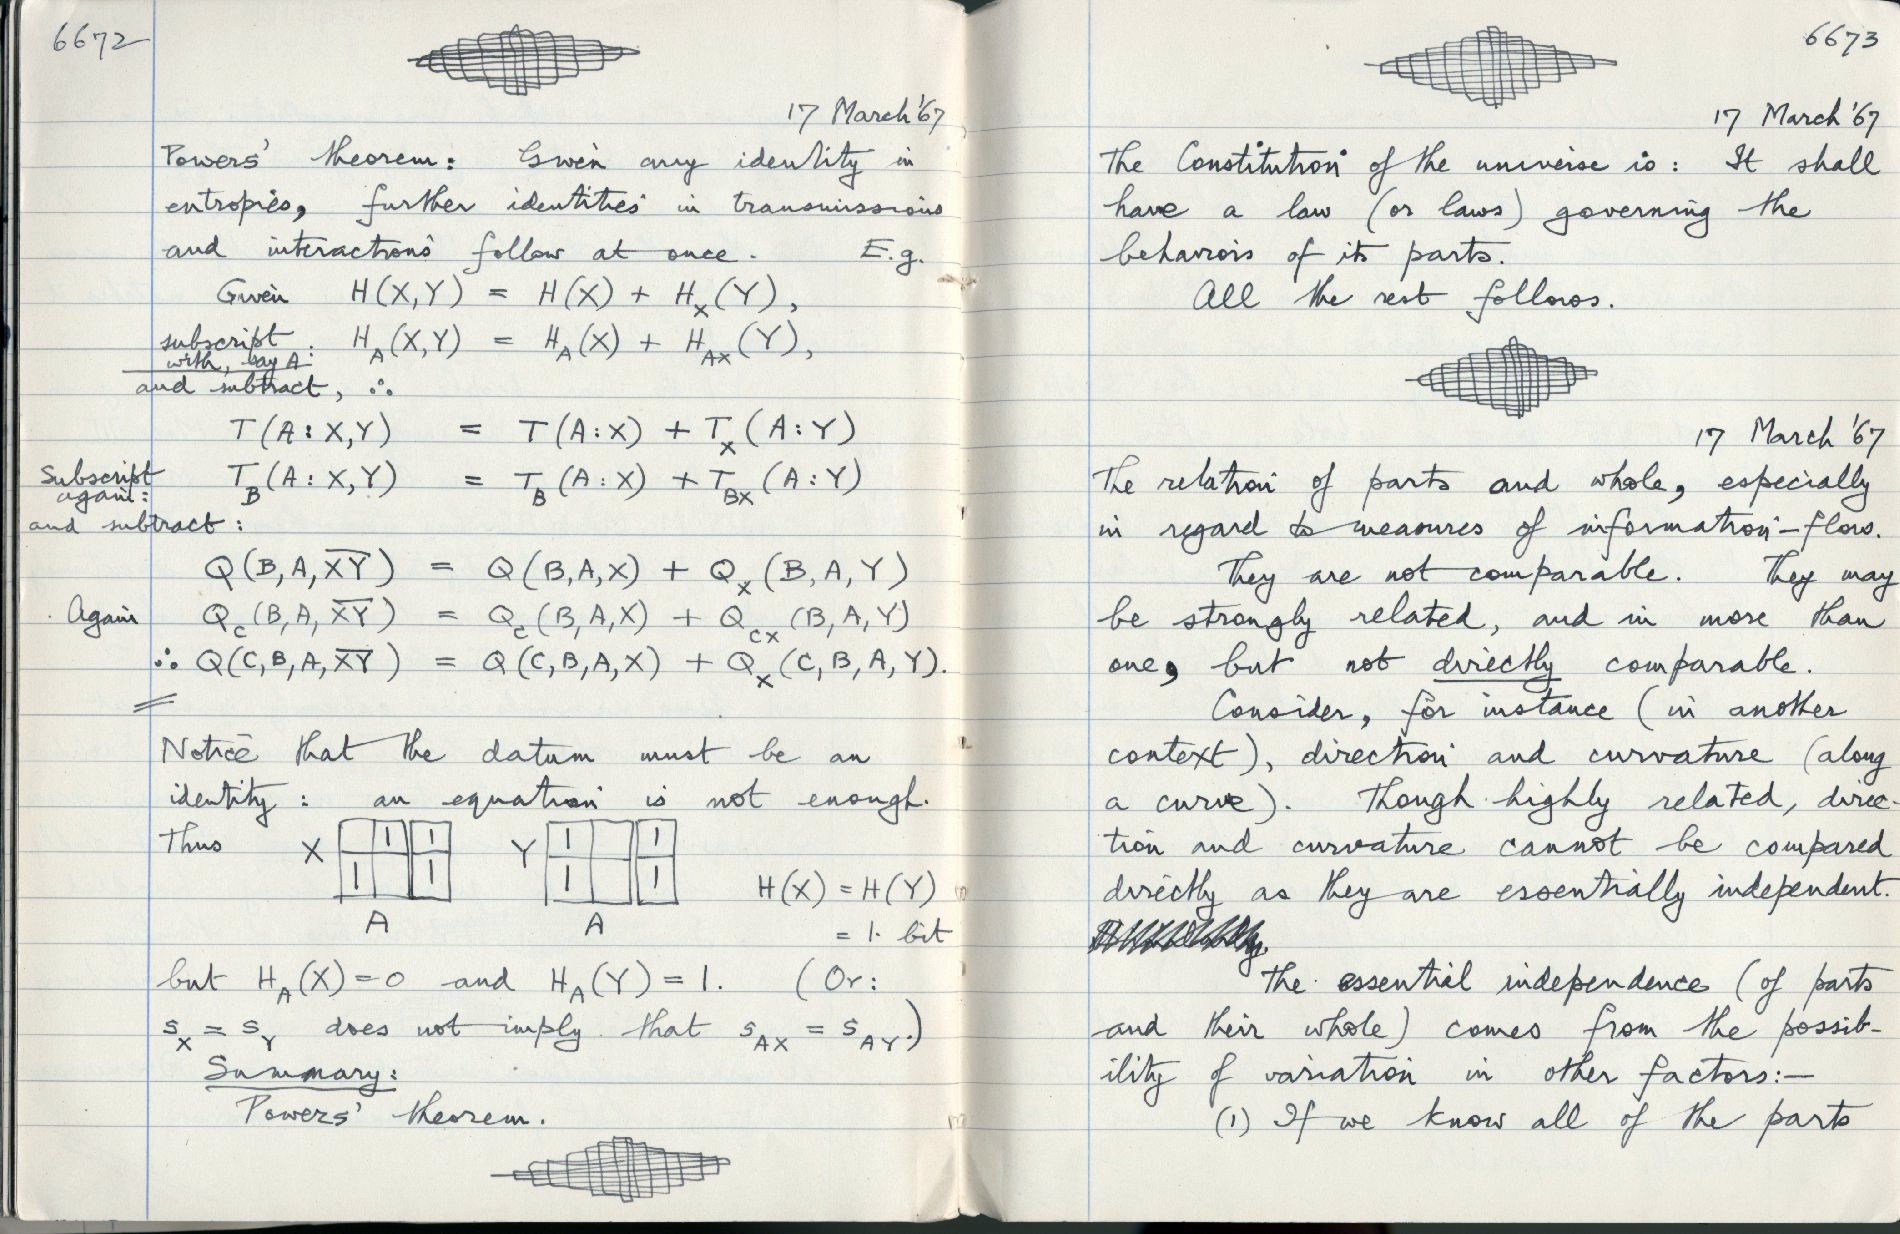 6672
17 March '67
Powers' theorem: Given any identity in
entropies, further identities in transmissions
and interactions follow at once. E.g.
Given H(X,Y) = H(X) + H_X(Y),
subscript H_A(X,Y) = H_A(X) + H_AX(Y),
with, say A:
and subtract, ∴
T(A:X,Y) = T(A:X) + T_X(A:Y)
Subscript again: T_B(A:X,Y) = T_B(A:X) + T_BX(A:Y)
and subtract:
Q(B,A,X̅Y̅) = Q(B,A,X) + Q_X(B,A,Y)
Again Q_C(B,A,X̅Y̅) = Q_C(B,A,X) + Q_CX(B,A,Y)
∴ Q(C,B,A,X̅Y̅) = Q(C,B,A,X) + Q_X(C,B,A,Y).
Notice that the datum must be an
identity: an equation is not enough.
Thus X 1 1 1 1 Y 1 1 1 1
H(X) = H(Y)
A A
= 1. bit
but H_A(X)=0 and H_A(Y)=1. (Or:
s_X = s_Y does not imply that s_AX = s_AY.)
Summary:
Powers' theorem.
6673
17 March '67
The Constitution of the universe is: It shall
have a law (or laws) governing the
behaviors of its parts.
All the rest follows.
17 March '67
The relation of parts and whole, especially
in regard to measures of information-flow.
They are not comparable. They may
be strongly related, and in more than
one, but not directly comparable.
Consider, for instance (in another
context), direction and curvature (along
a curve). Though highly related, direc-
tion and curvature cannot be compared
directly as they are essentially independent.
The essential independence (of parts
and their whole) comes from the possib-
ility of variation in other factors:—
(1) If we know all of the parts